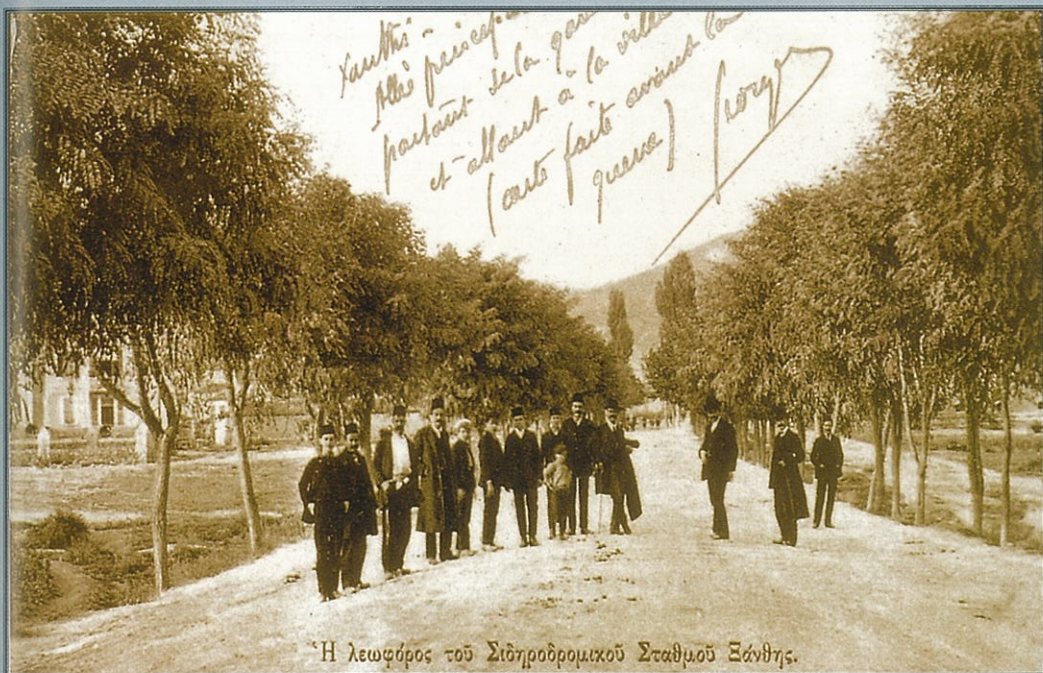 Xanthi -
Allée
partant de la
et allant à la ville
(carte faite avant la
guerre)
Ἡ λεωφόρος τοῦ Σιδηροδρομικοῦ Σταθμοῦ Ξάνθης.